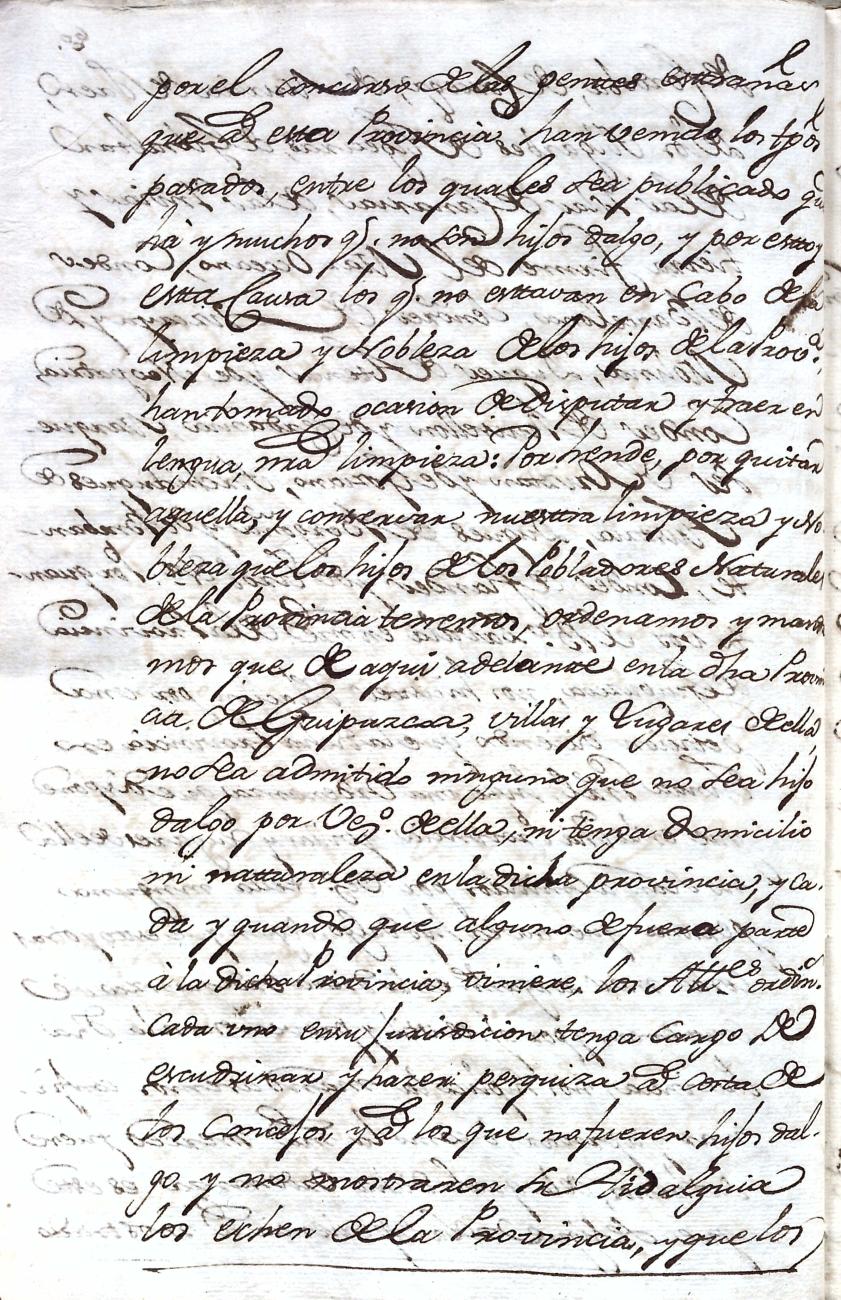 por el concurso de las gentes estrañas
que à esta Provincia han venido los tpõs
pasados, entre los quales sea publicado que
hà y muchos q̃. no son hijos dalgo, y por esto y
esta Causa los q̃. no estavan en Cabo de la
limpieza y Nobleza de los hijos de la Provª.
han tomado ocasion de Disputar y traer en
lengua nrã limpieza: Por hende, por quitar
aquella, y conservar nuestra limpieza y No-
bleza que los hijos de los Pobladores Naturales
de la Provincia tenemos, ordenamos y manda
mos que de aqui adelante en la dha Provin
cia de Guipuzcoa, villas y Lugares de ella,
no sea admitido ninguno que no sea hijo
dalgo por Vezº. de ella, ni tenga domicilio
ni naturaleza en la dicha provincia, y ca-
da y quando que alguno de fuera parte
à la dicha Provincia, viniere, los Allᵉˢ ordin.ˢ
Cada uno en su Jurisdicion tenga cargo de
escudriñar y hazer pesquiza à costa de
los Concejos, y à los que no fueren hijos dal-
go, y no mostraren su Hidalguia
los echen de la Provincia, y que los